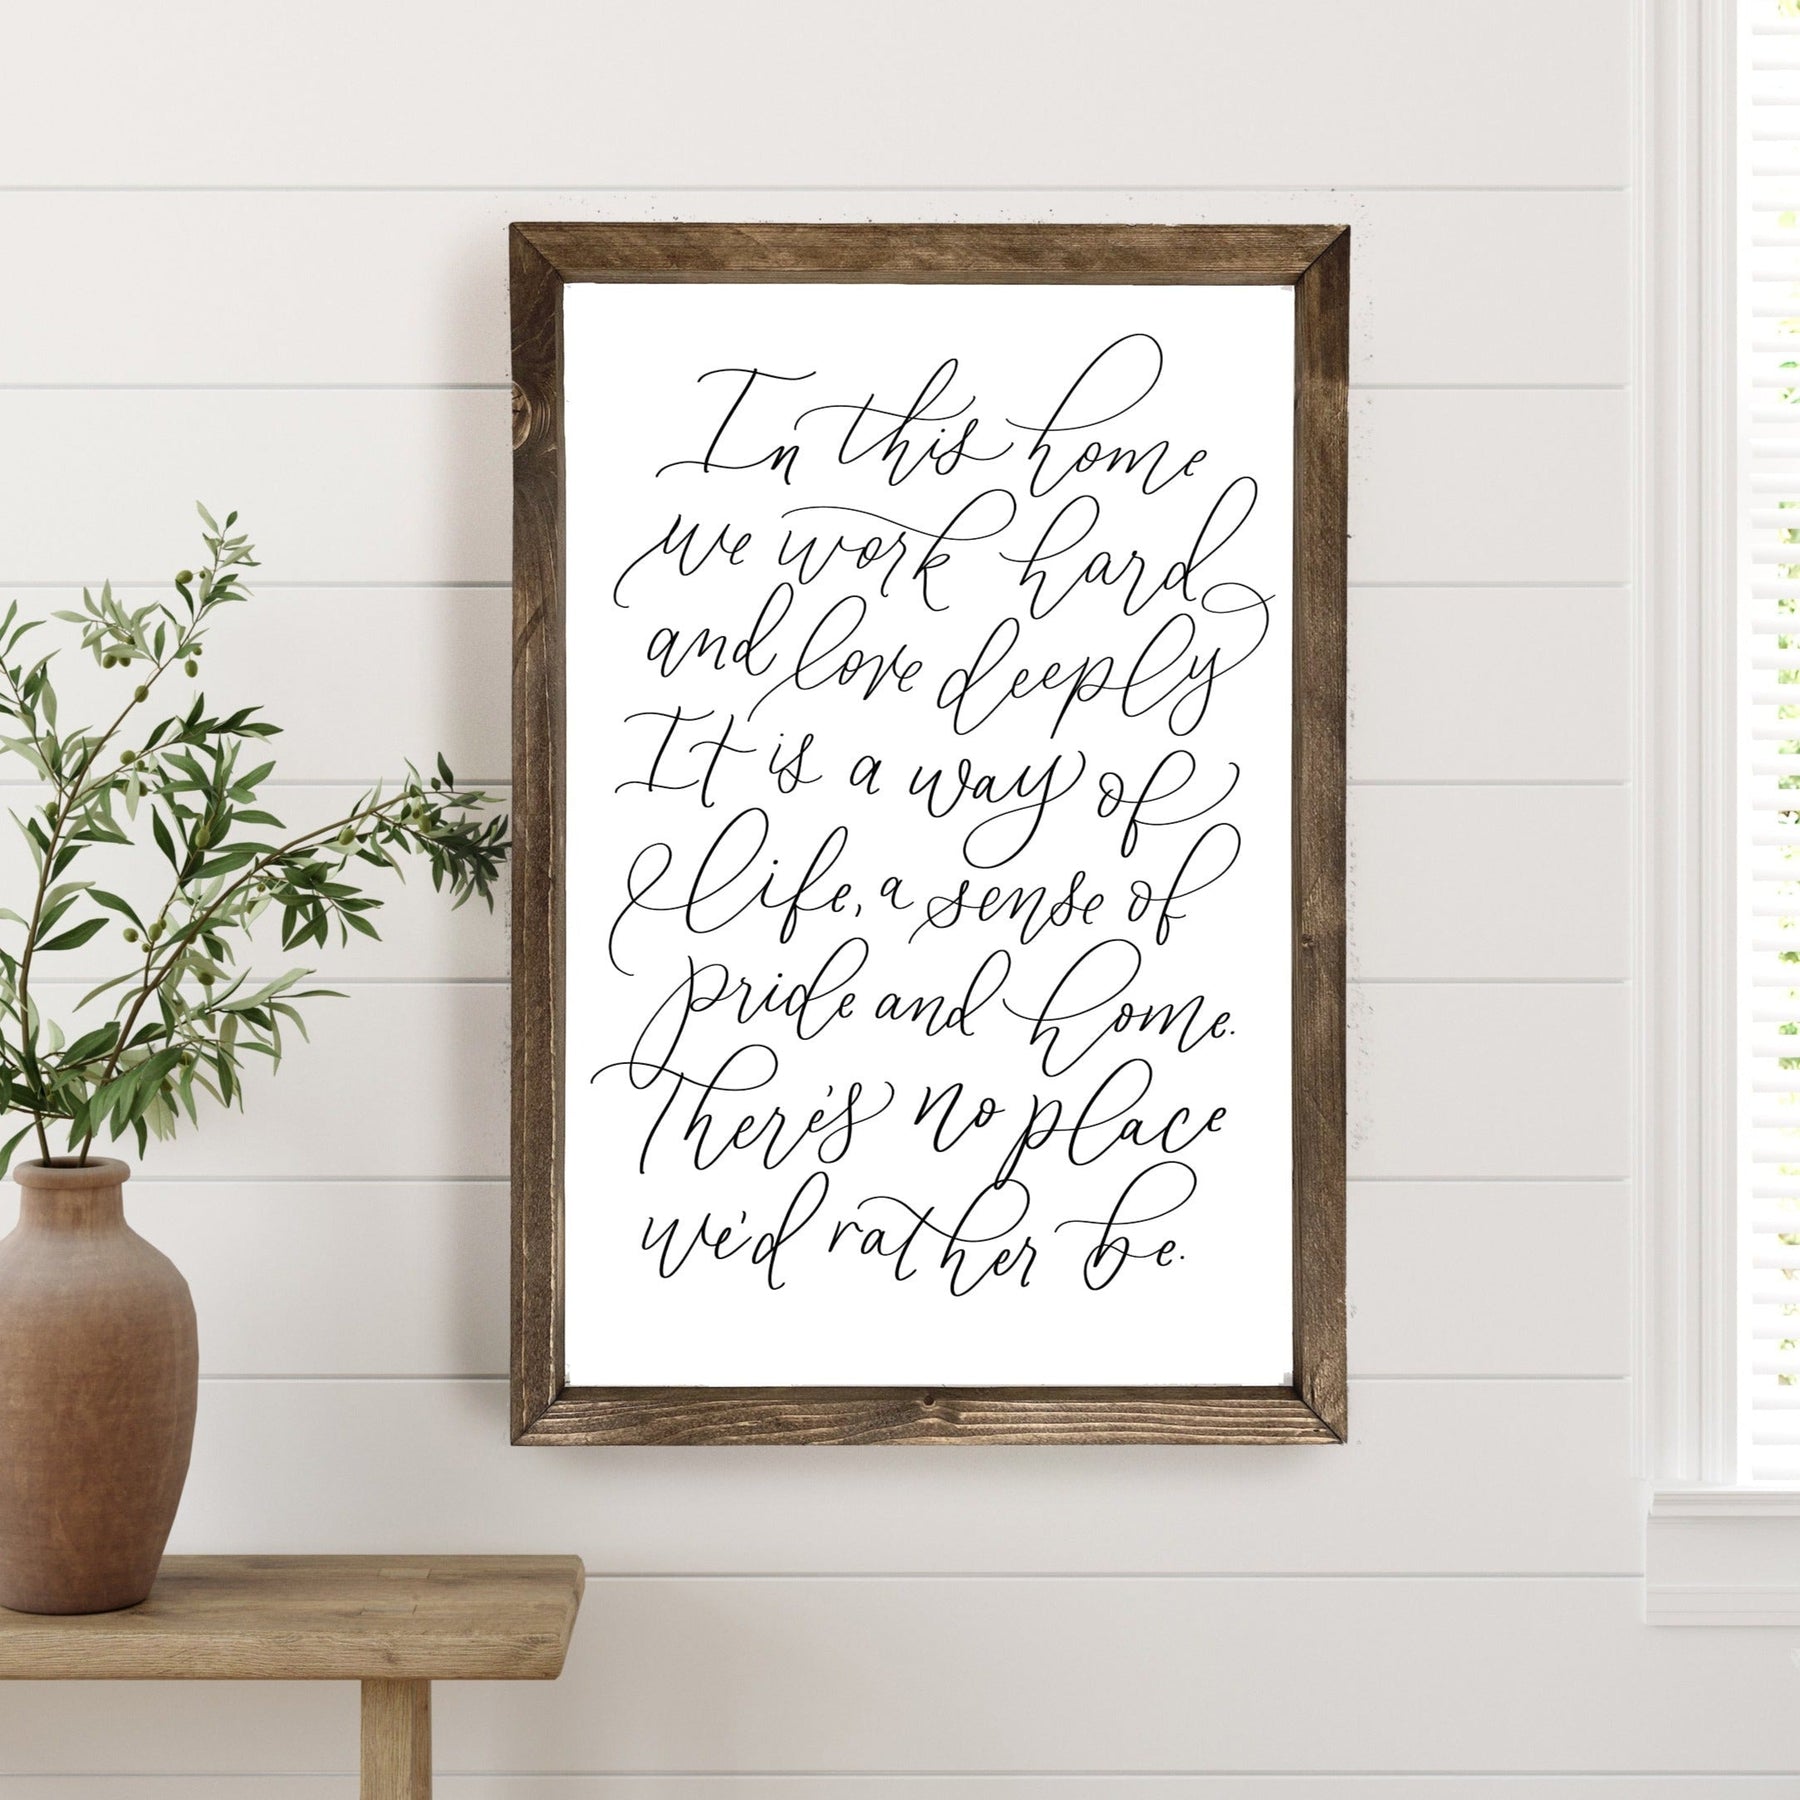 In this home
we work hard
and love deeply
It is a way of
life, a sense of
pride and home.
There's no place
we'd rather be.